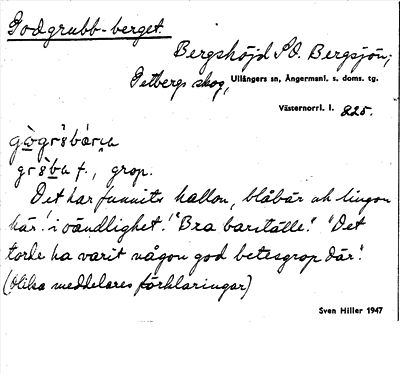 Godgrubb-berget.
Bergshöjd S.O. Bergsjön,
Petbergs skog, Ullångers sn, Ångermanl. s. doms. tg.
Västernorrl. l. 825.
grŏba f., grop.
Det har funnits hallon, blåbär och lingon
här "i oändlighet". "Bra barställe". "Det
torde ha varit någon god betesgrop där".
(Olika meddelares förklaringar)
Sven Hiller 1947